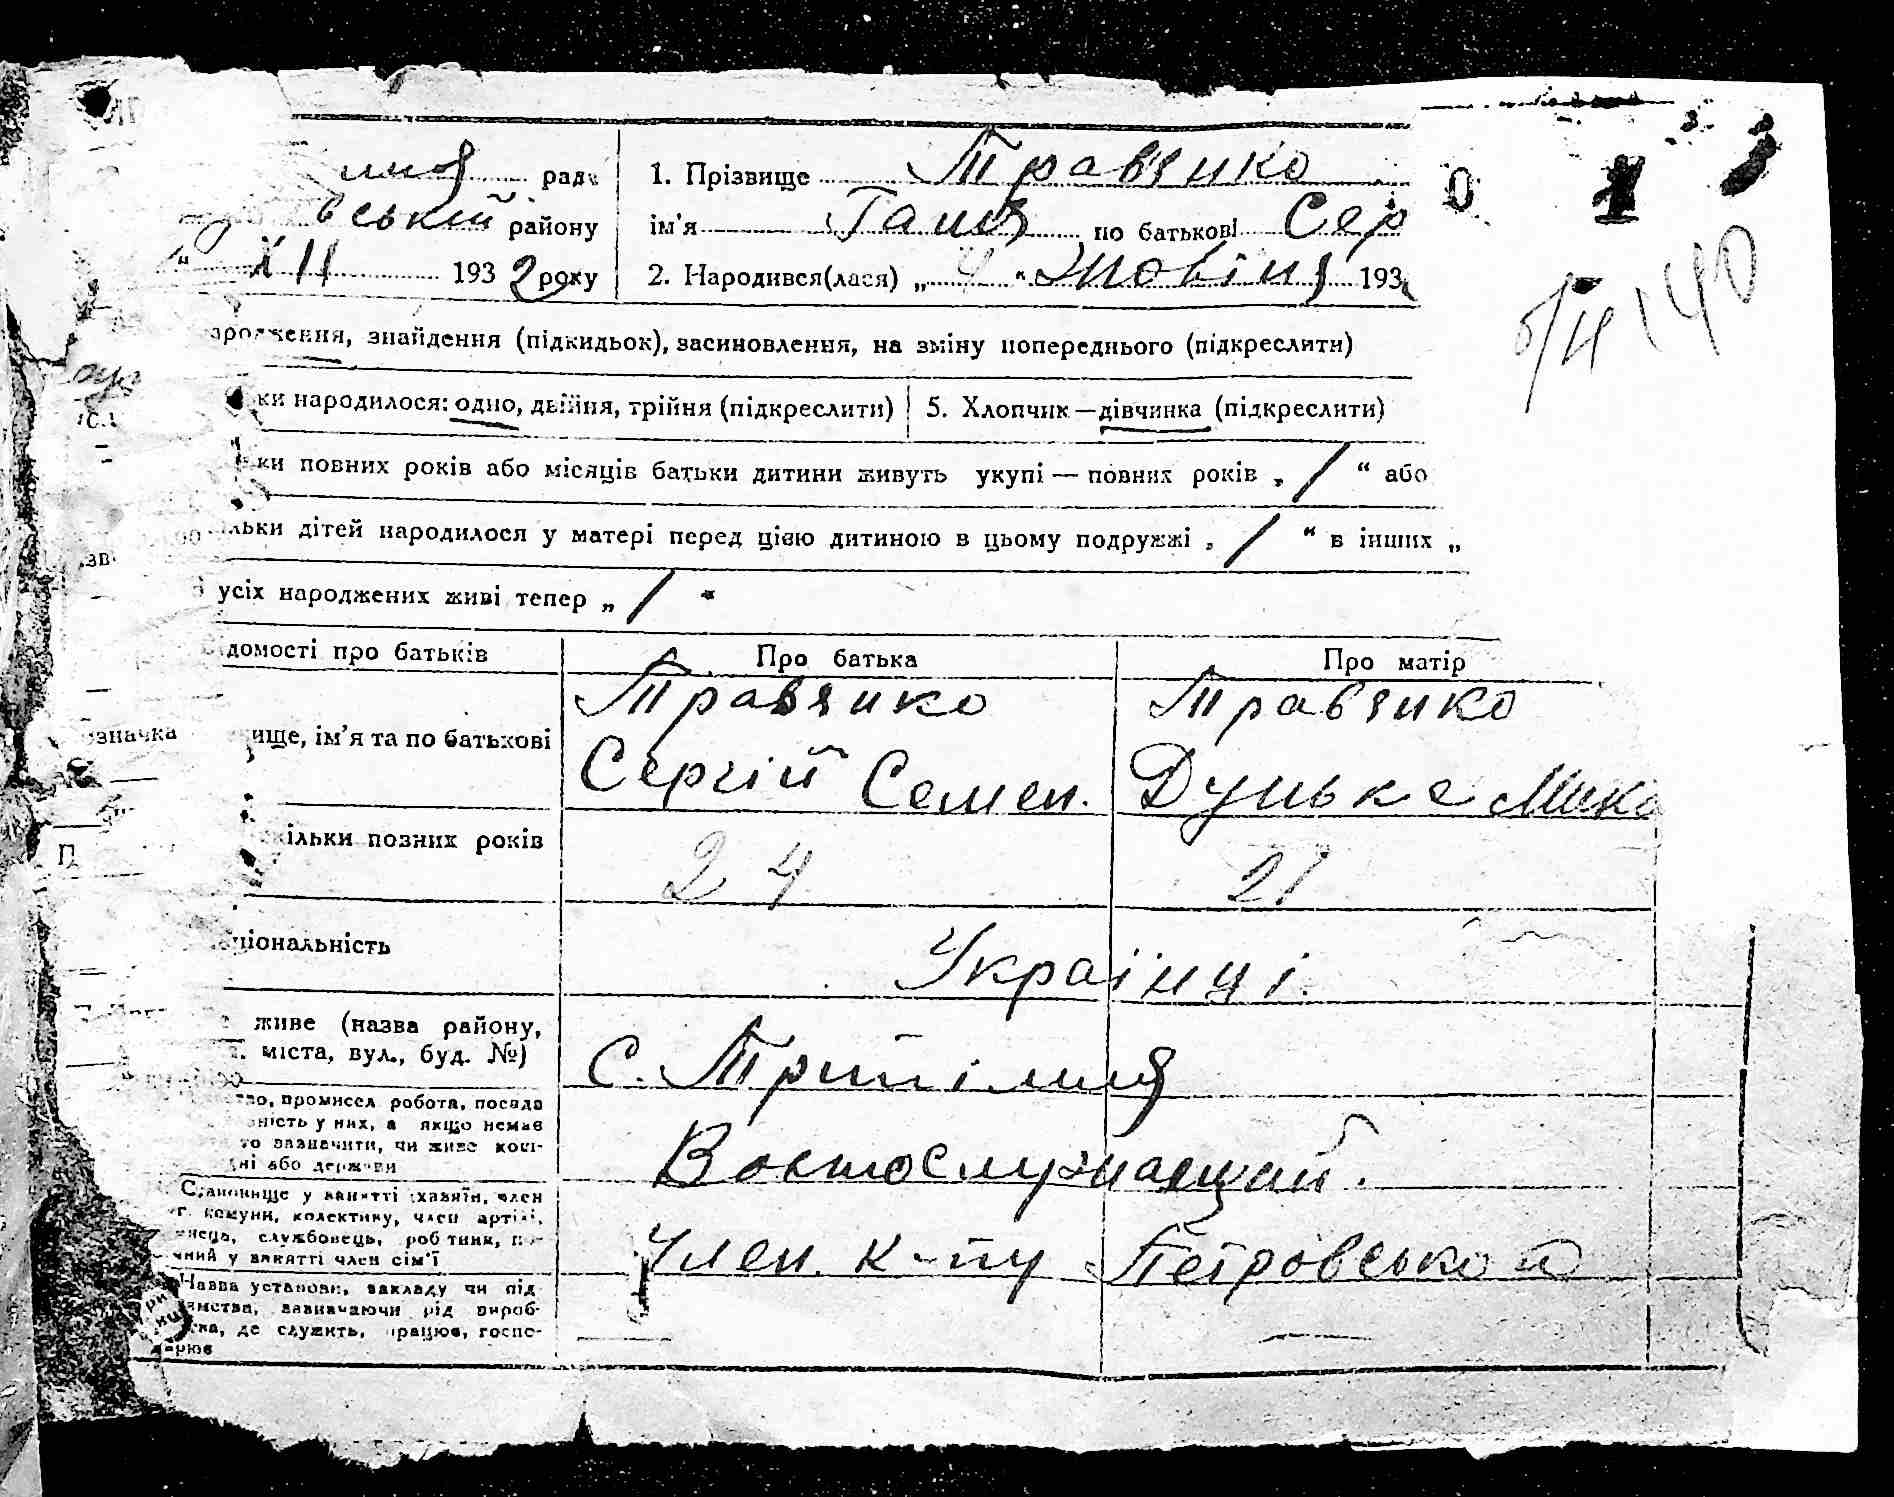 раді 1. Прізвище Травянко
ській району ім'я Ганя по батькові Сер
" XII 1932 року 2. Народився(лася) „ 4 " Жовтня 193
ародження, знайдення (підкидьок), засиновлення, на зміну попереднього (підкреслити)
ки народилося: одно, двійня, трійня (підкреслити) 5. Хлопчик — дівчинка (підкреслити)
ки повних років або місяців батьки дитини живуть укупі — повних років „ / " або
льки дітей народилося у матері перед цією дитиною в цьому подружжі „ / " в інших „
усіх народжених живі тепер „ / "
б/н 140
домості про батьків Про батька Про матір
Травянко Травянко
ище, ім'я та по батькові
Сергій Семен. Дунька Мико
кільки повних років 24 21
ціональність Українці
живе (назва району,
міста, вул., буд. №) с. Трипілля
во, промисел робота, посада
ність у них, а якщо немає
то зазначити, чи живе кош-
ні або держави
Становище у занятті (хазяїн, член
комуни, колективу, член артілі,
службовець, робітник, по-
чний у занятті член сім'ї Член к-пу Петровського
Назва установи, закладу чи під
ємства, зазначаючи рід вироб-
ва, де служить, працює, госпо-
рює